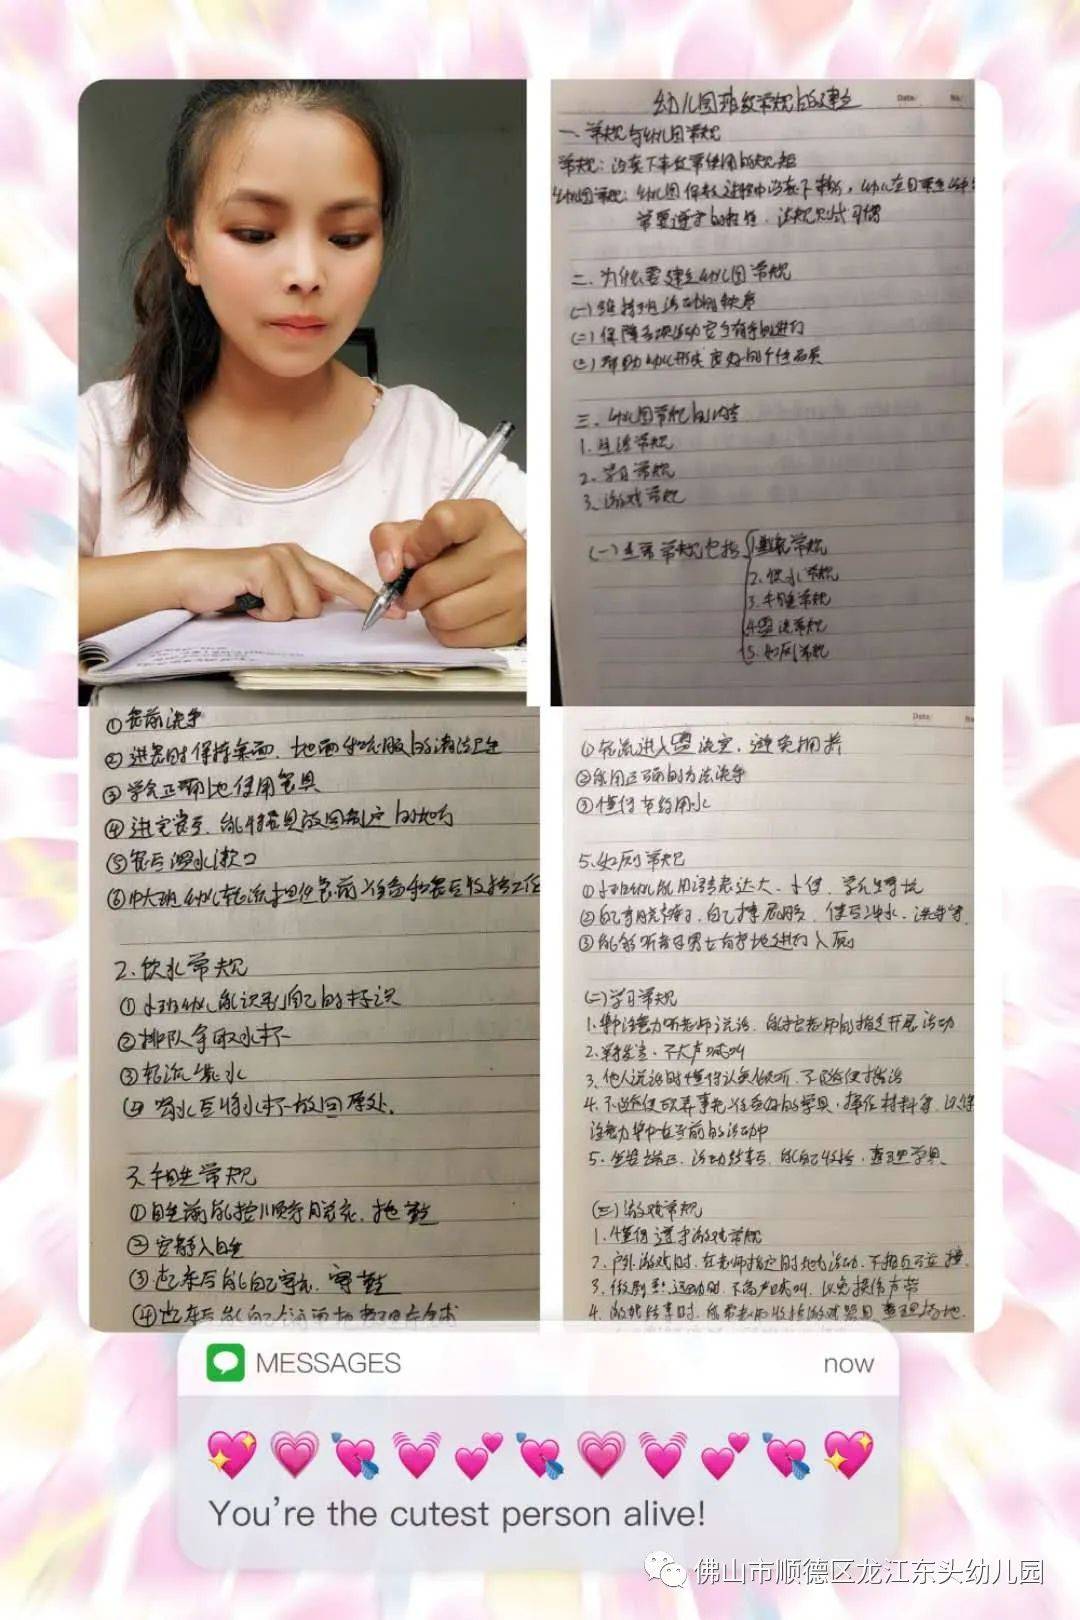 幼儿园班级常规的建立
一、常规与幼儿园常规
常规：沿袭下来经常使用的规矩
幼儿园常规：幼儿园保教过程中沿袭下来的，幼儿在日常生活中
常要遵守的
二、为什么要建立幼儿园常规
(一)维持班活动的秩序
(二)保障各项活动安全有序的进行
(三)帮助幼儿形成良好的个性品质
三、幼儿园常规的内容
1.生活常规
2.学习常规
3.游戏常规
(一)生活常规包括
1.进餐常规
2.饮水常规
3.午睡常规
4.盥洗常规
5.如厕常规
①餐前洗手
②进餐时保持桌面、地面和衣服的清洁卫生
③学会正确地使用餐具
④进完餐后，能将餐具放回制定的地方
⑤餐后温水漱口
⑥中大班幼儿轮流担任餐前任务和餐后收拾工作
2.饮水常规
①小班幼儿能识别自己的标识
②排队拿取水杯
③轮流装水
④喝水后将水杯放回原处.
3.午睡常规
①睡前能按顺序脱衣、拖鞋
②安静入睡
③起床后能自己穿衣、穿鞋
④起床后能自己
①轮流进入盥洗室，避免拥挤
②能用正确的方法洗手
③懂得节约用水
5.如厕常规
①小班幼儿能用语言表达大、小便
②自己穿脱裤子，自己擦屁股，便后冲水、洗手等.
③能够听音乐男女有序地进行入厕
(二)学习常规
1.集中注意力听老师说话，能按老师的指定开展活动
2.举手发言，不大声喊叫
3.他人说话时懂得认真倾听，不随便插话
4.不随便玩弄事先准备好的学具，操作材料等，以保
注意力集中在当前的活动中
5.坐姿端正，活动结束后，能自己收拾，整理学具
(三)游戏常规
1.懂得遵守游戏常规
2.户外游戏时，在老师指定的场地活动，不相互碰撞.
3.做剧烈运动时，不高声喊叫，以免损伤声带
4.游戏结束时，能帮老师收拾游戏器具，整理场地.
MESSAGES now
You're the cutest person alive!
佛山市顺德区龙江东头幼儿园